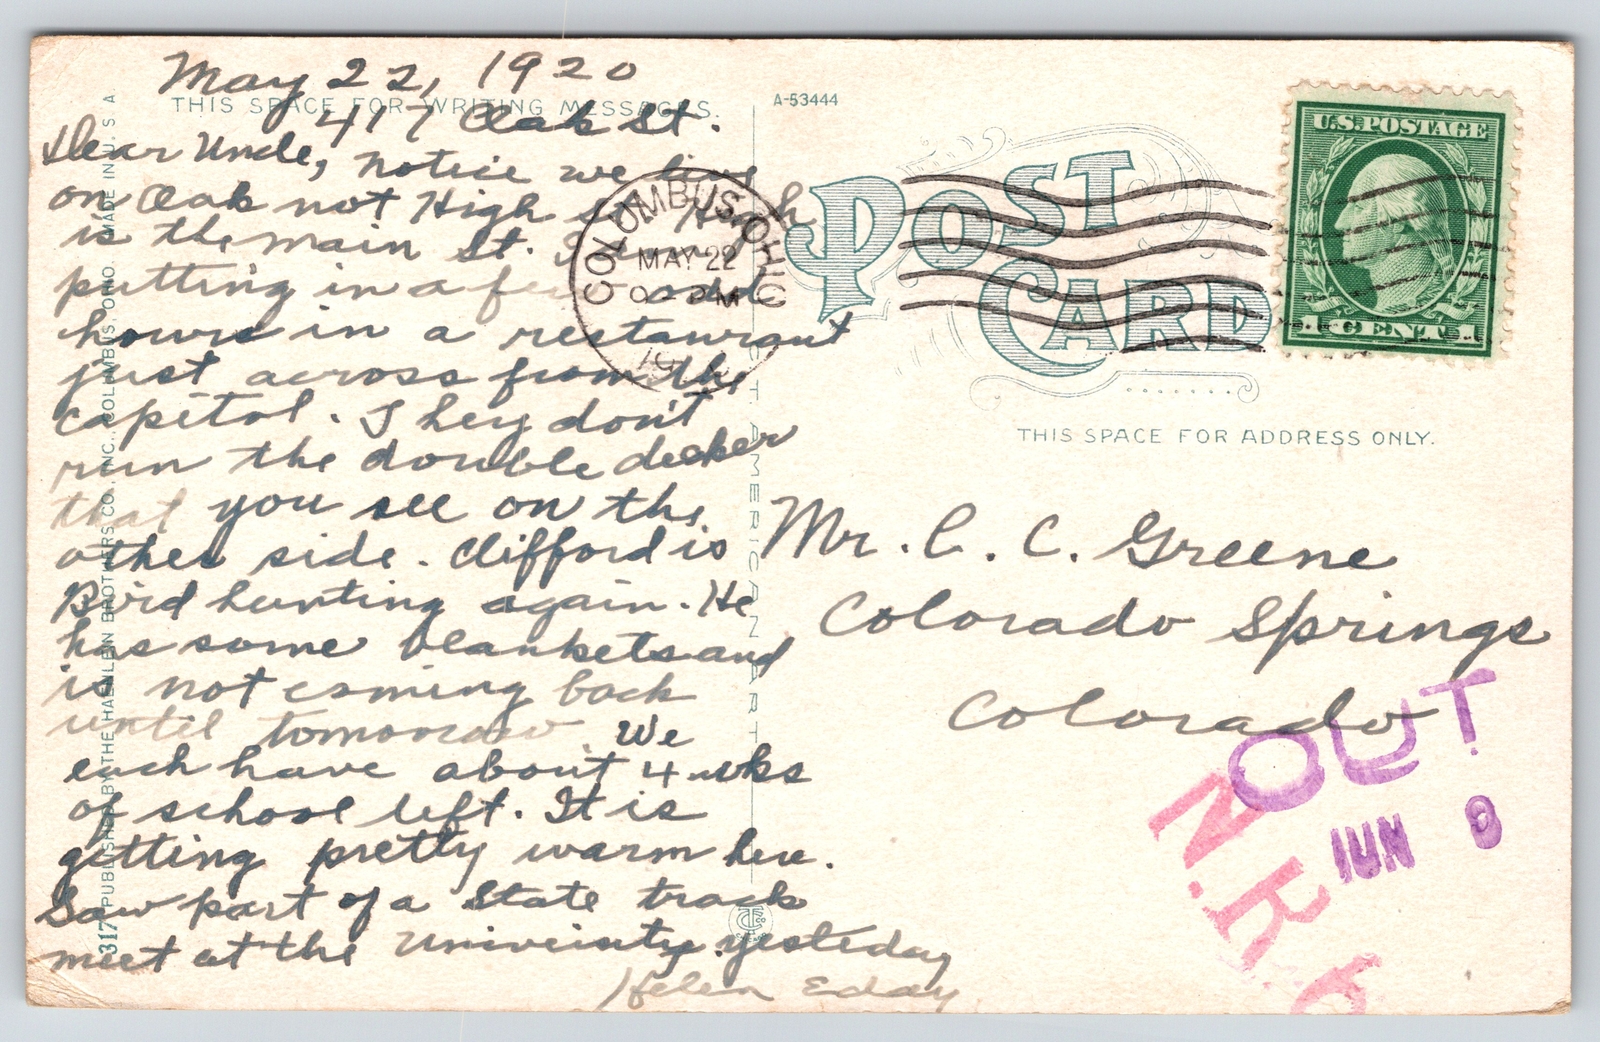 May 22, 1920
THIS SPACE FOR WRITING MESSAGES.
417 Oak St.
Dear Uncle, notice we live
on Oak not High st. High
is the main St. I am
putting in a few odd
hours in a restaurant
just across from the
capitol. They don't
run the double decker
that you see on the
other side. Clifford is
Bird hunting again. He
has some blankets and
is not coming back
until tomorrow We
each have about 4 wks
of school left. It is
getting pretty warm here.
Saw part of a State track
meet at the University yesteday
Helen Eday
317 PUBLISHED BY THE HAENLEIN BROTHERS CO., INC., COLUMBUS, OHIO. MADE IN U. S. A
C. T. AMERICAN ART
A-53444
POST CARD
COLUMBUS, OHIO
MAY 22
PM
19
U.S. POSTAGE
1 CENT 1
THIS SPACE FOR ADDRESS ONLY.
Mr. C. C. Greene
Colorado Springs
Colorado
OUT
JUN 9
N.R.